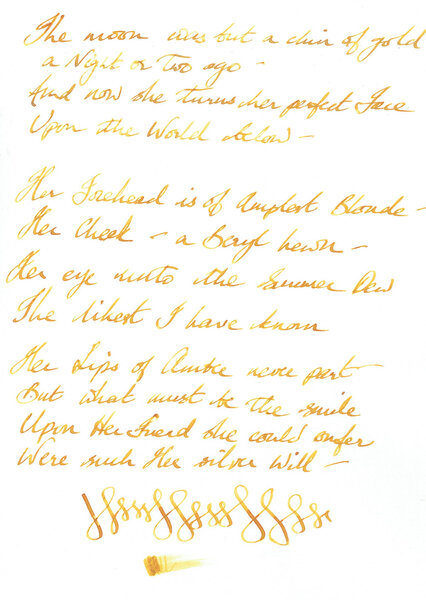 The moon was but a chin of gold
a Night or Two ago -
And now she turns her perfect Face
Upon the World below -
Her Forehead is of Amplest Blonde -
Her Cheek - a Beryl hewn -
Her eye unto the Summer Dew
The likest I have known
Her Lips of Amber never part
But what must be the smile
Upon Her Friend she could confer
Were such Her silver Will -